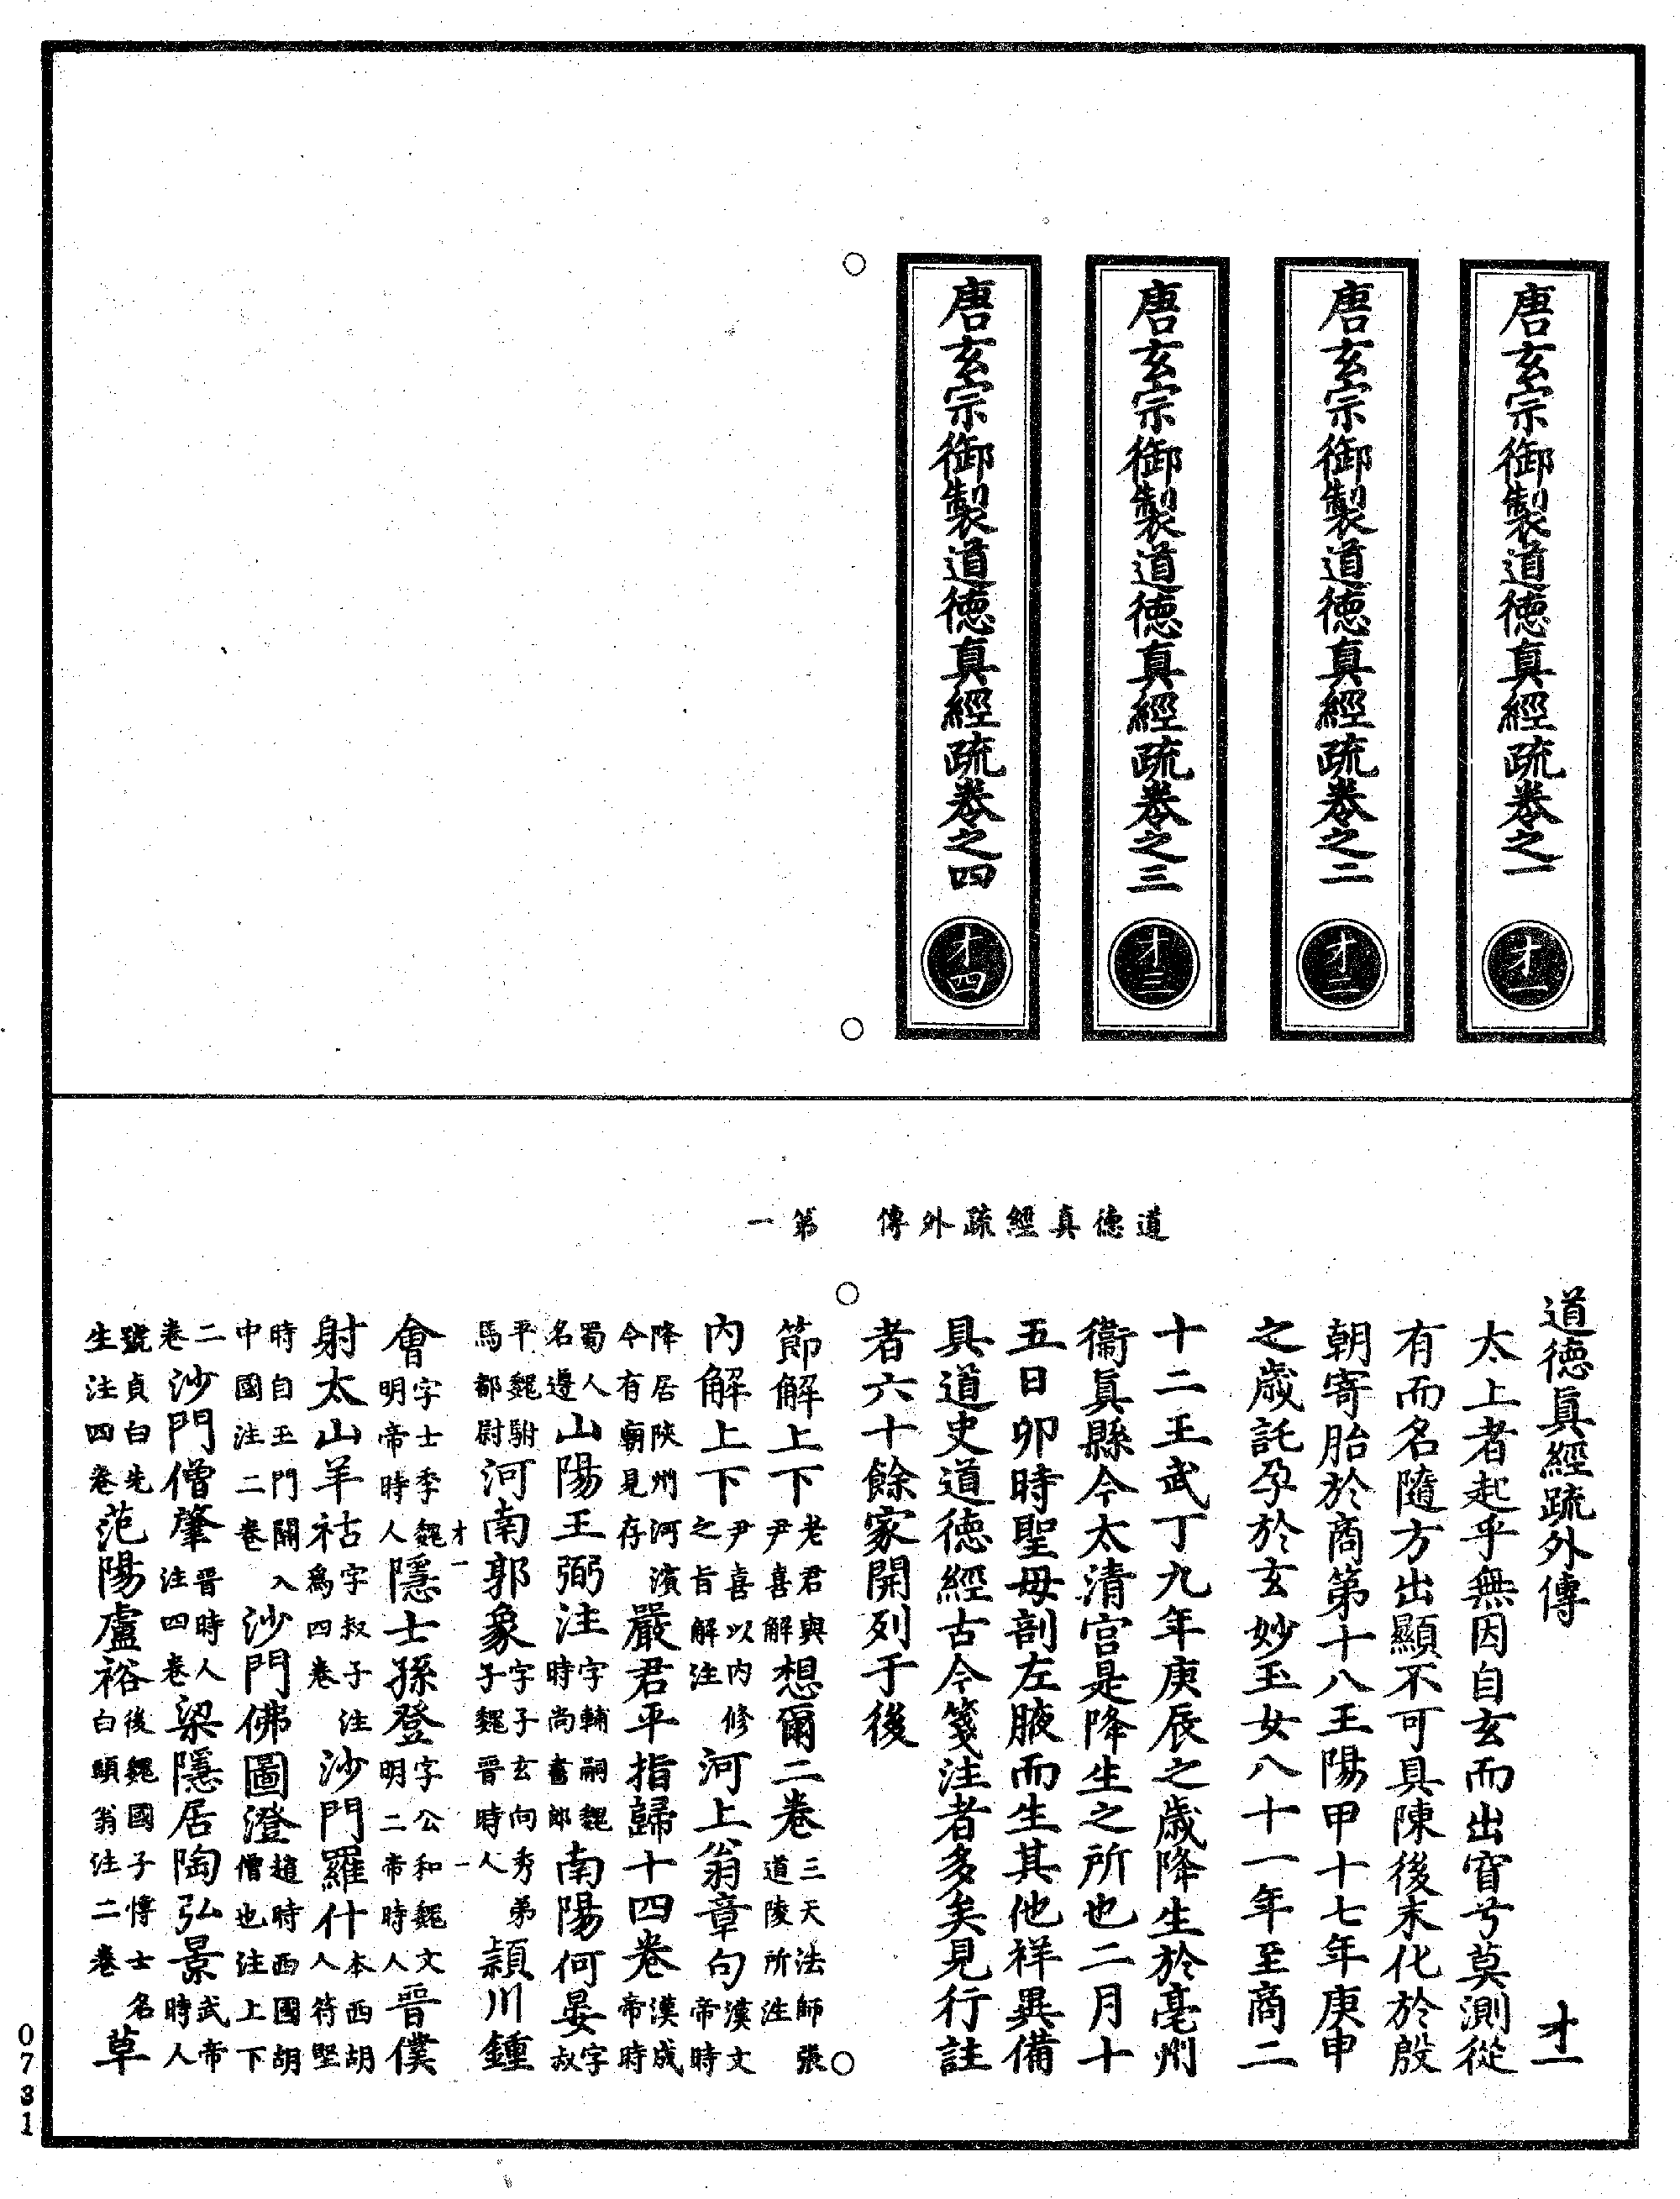 唐玄宗御製道德真經疏卷之一
才一
唐玄宗御製道德真經疏卷之二
才二
唐玄宗御製道德真經疏卷之三
才三
唐玄宗御製道德真經疏卷之四
才四
道德真經疏外傳 第一
道德真經疏外傳 才一
太上者起乎無因自玄而出窅兮莫測從
有而名隨方出顯不可具陳後末化於殷
朝寄胎於商第十八王陽甲十七年庚申
之歲託孕於玄妙玉女八十一年至商二
十二王武丁九年庚辰之歲降生於亳州
衞真縣今太清宮是降生之所也二月十
五日卯時聖母剖左腋而生其他祥異備
具道史道德經古今箋注者多矣見行註
者六十餘家開列于後
節解上下老君與尹喜解想爾二卷三天法師張道陵所注
內解上下尹喜以內修之旨解注河上翁章句漢文帝時
降居陝州河濱今有廟見存嚴君平指歸十四卷漢成帝時
蜀人名遵山陽王弼注字輔嗣魏時尚書郎南陽何晏字叔
平魏駙馬都尉河南郭象字子玄向秀弟子魏晉時人頴川鍾
才一 一
會字士季魏明帝時人隱士孫登字公和魏文明二帝時人晉僕
射太山羊祜字叔子注為四卷沙門羅什本西胡人符堅
時自玉門關入中國注二卷沙門佛圖澄趙時西國胡僧也注上下
二卷沙門僧肇晉時人注四卷梁隱居陶弘景武帝時人
號貞白先生注四卷范陽盧裕後魏國子博士名白頭翁注二卷草
0731